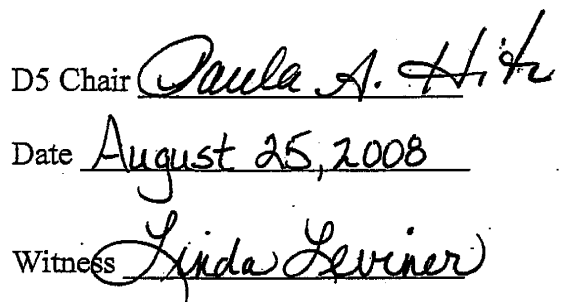 D5 Chair Paula A. Hitz
Date August 25, 2008
Witness Linda Leviner